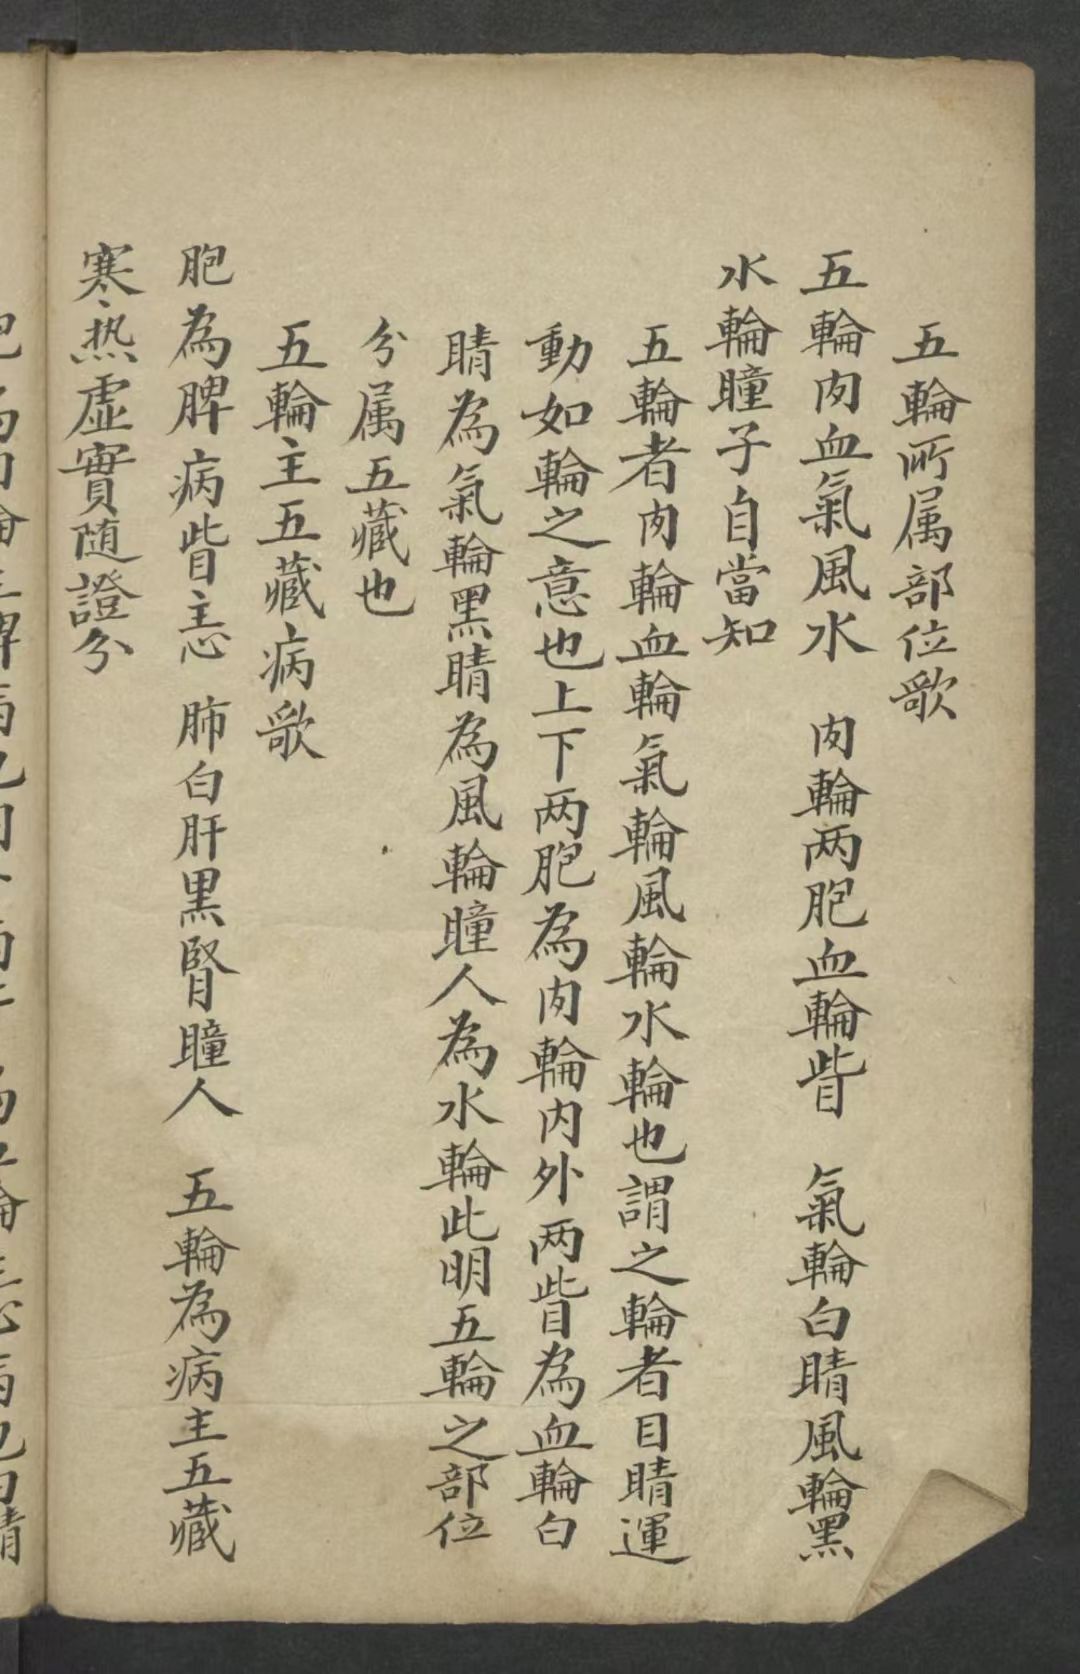 五輪所属部位歌
五輪肉血氣風水　肉輪两胞血輪眥　氣輪白睛風輪黑
水輪瞳子自當知
五輪者肉輪血輪氣輪風輪水輪也謂之輪者目睛運
動如輪之意也上下两胞為肉輪内外两眥為血輪白
睛為氣輪黑睛為風輪瞳人為水輪此明五輪之部位
分属五藏也
五輪主五藏病歌
胞為脾病眥主心　肺白肝黑腎瞳人　五輪為病主五藏
寒热虛實随證分